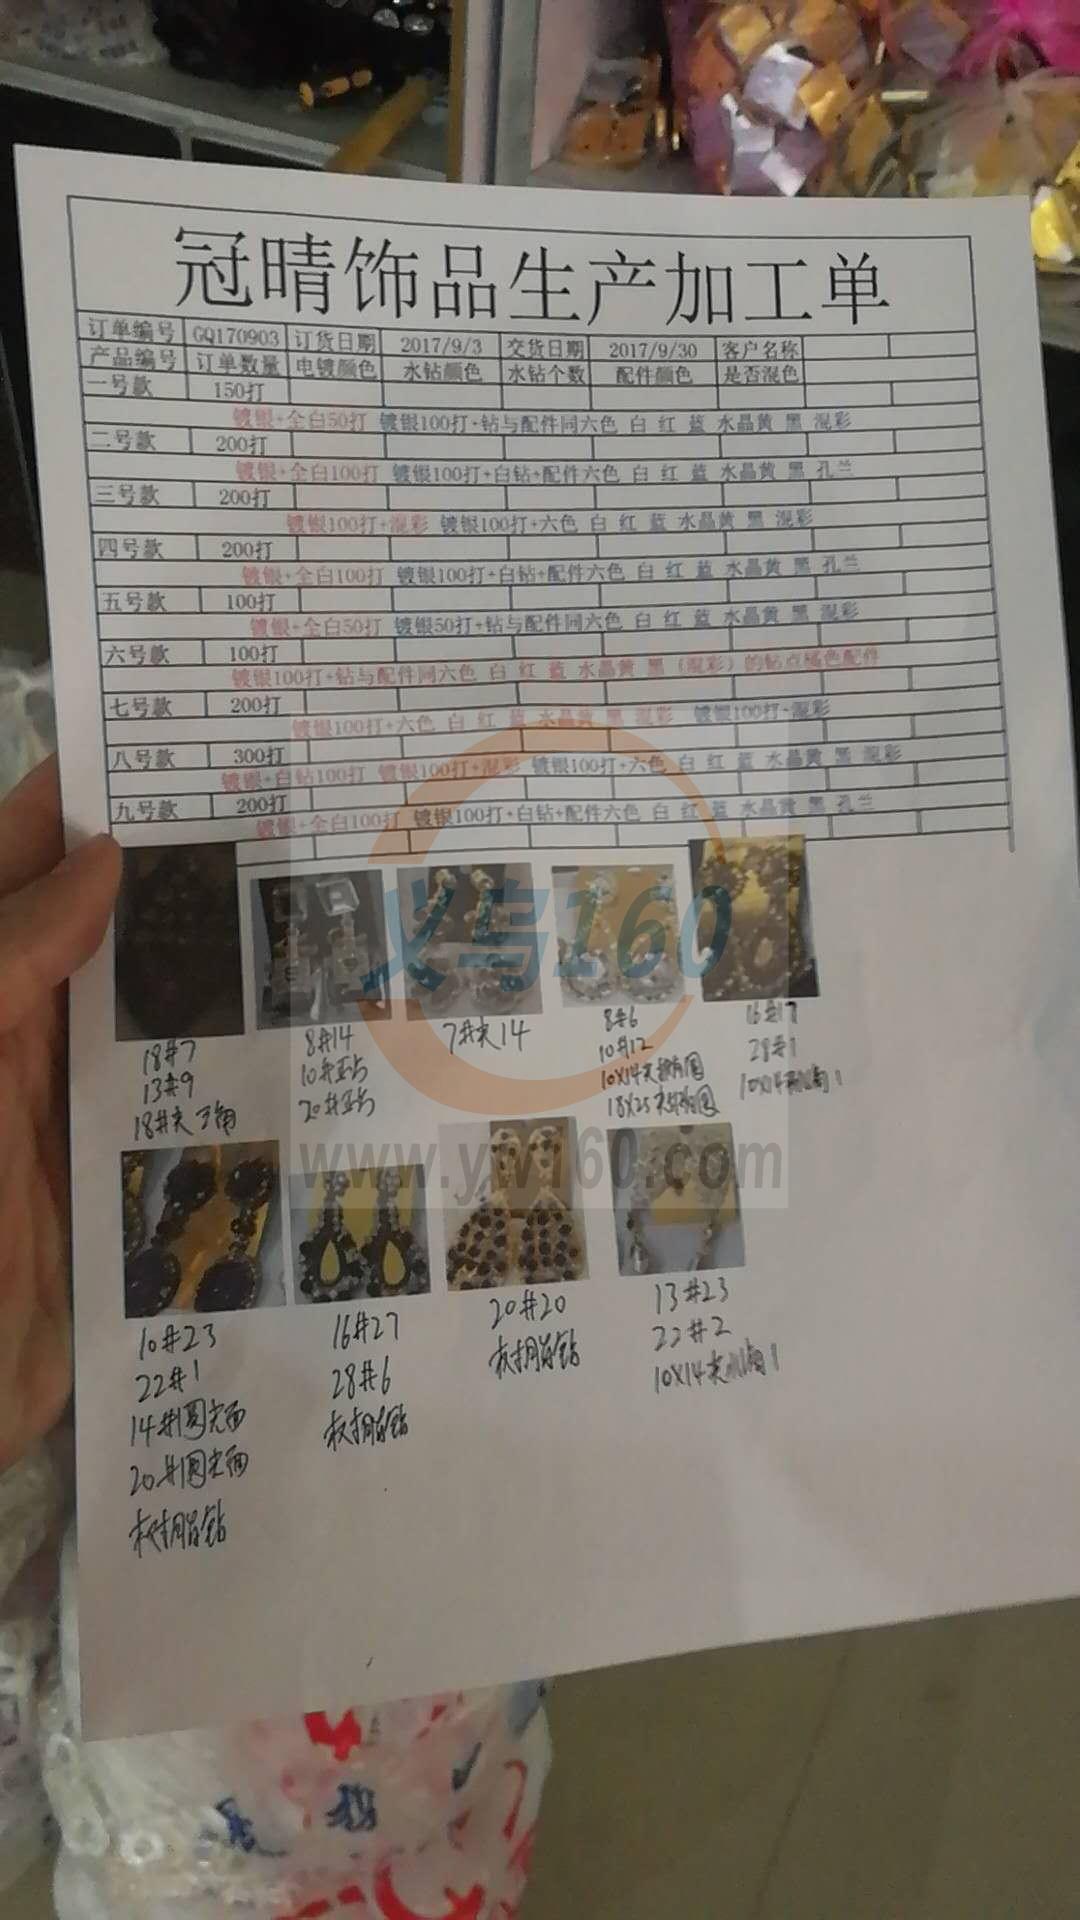 冠晴饰品生产加工单
订单编号 GQ170903 订货日期 2017/9/3 交货日期 2017/9/30 客户名称
产品编号 订单数量 电镀颜色 水钻颜色 水钻个数 配件颜色 是否混色
一号款 150打
镀银+全白50打 镀银100打+钻与配件同六色 白 红 蓝 水晶黄 黑 混彩
二号款 200打
镀银+全白100打 镀银100打+白钻+配件六色 白 红 蓝 水晶黄 黑 孔兰
三号款 200打
镀银100打+混彩 镀银100打+六色 白 红 蓝 水晶黄 黑 混彩
四号款 200打
镀银+全白100打 镀银100打+白钻+配件六色 白 红 蓝 水晶黄 黑 孔兰
五号款 100打
镀银+全白50打 镀银50打+钻与配件同六色 白 红 蓝 水晶黄 黑 混彩
六号款 100打
镀银100打+钻与配件同六色 白 红 蓝 水晶黄 黑 (混彩)的钻点橘色配件
七号款 200打
镀银100打+六色 白 红 蓝 水晶黄 黑 混彩 镀银100打+混彩
八号款 300打
镀银+白钻100打 镀银100打+混彩 镀银100打+六色 白 红 蓝 水晶黄 黑 混彩
九号款 200打
镀银+全白100打 镀银100打+白钻+配件六色 白 红 蓝 水晶黄 黑 孔兰
义乌160
www.yw160.com
18#7
13#9
18#尖三角
8#14
10#
20#
7#尖14
8#6
10#12
10X14尖
18X25尖
16#17
28#1
10X14 1
10#23
22#1
14#圆尖面
20#圆尖面
树脂钻
16#27
28#6
树脂钻
20#20
树脂钻
13#23
22#2
10X14尖 1